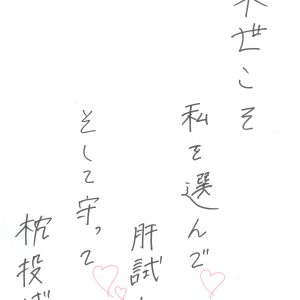 来世こそ
私を選んで♡
肝試し
そして守って♡♡
枕投げ